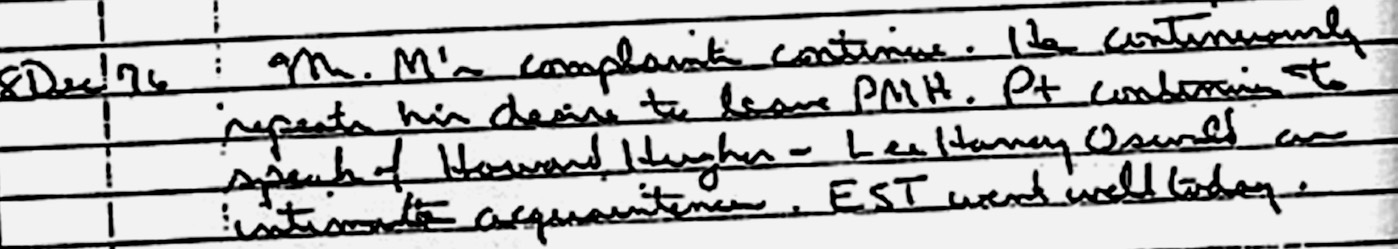 8Dec 76 Mr. M's complaints continue. He continuously
repeats his desire to leave PMH. Pt continues to
speak of Howard Hughes - Lee Harvey Oswald as
intimate acquaintences. EST went well today.